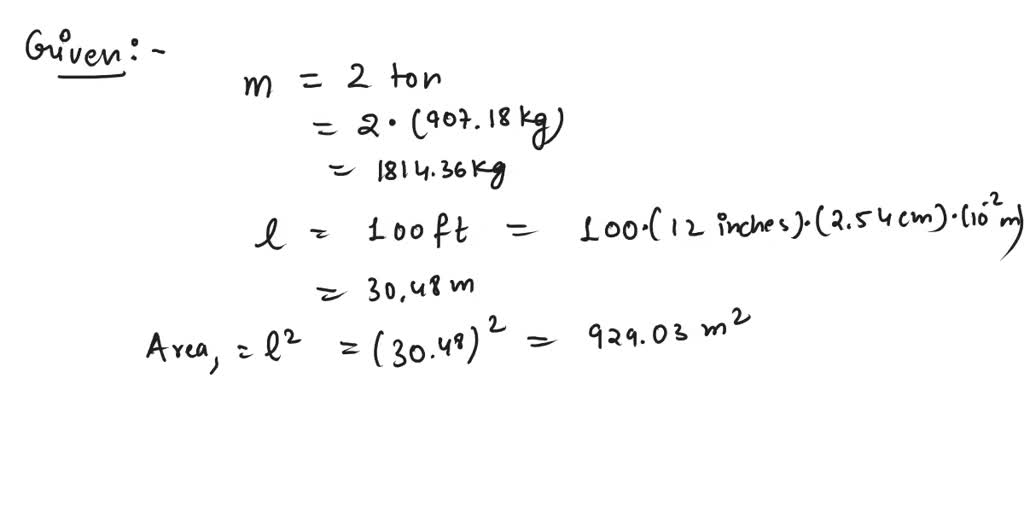 Given:-
m = 2 ton
= 2·(907.18kg)
= 1814.36kg
l = 100ft = 100·(12 inches)·(2.54cm)·(10⁻²m)
= 30.48m
Area, = l² = (30.48)² = 929.03 m²